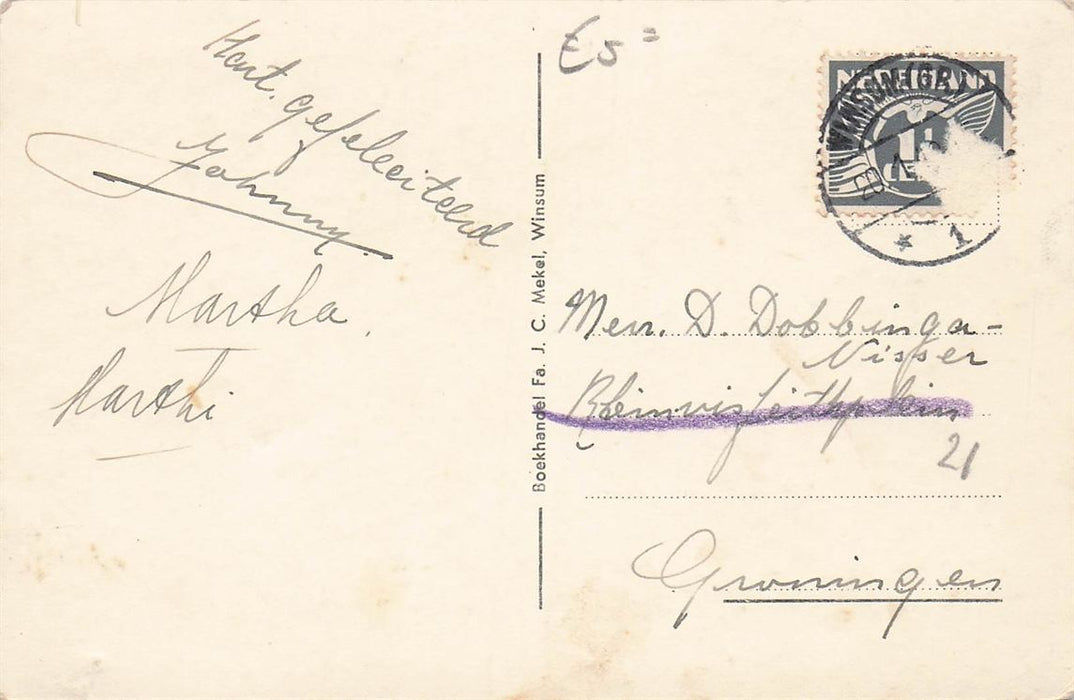 Hart. gefeliciteerd
Johnny.
Martha.
Marthi
€5=
Boekhandel Fa. J. C. Mekel, Winsum
NEDERLAND
WINSUM (GR.)
1
Mevr. D. Dobbinga-
Visser
Rheinvis Feithplein
21
Groningen